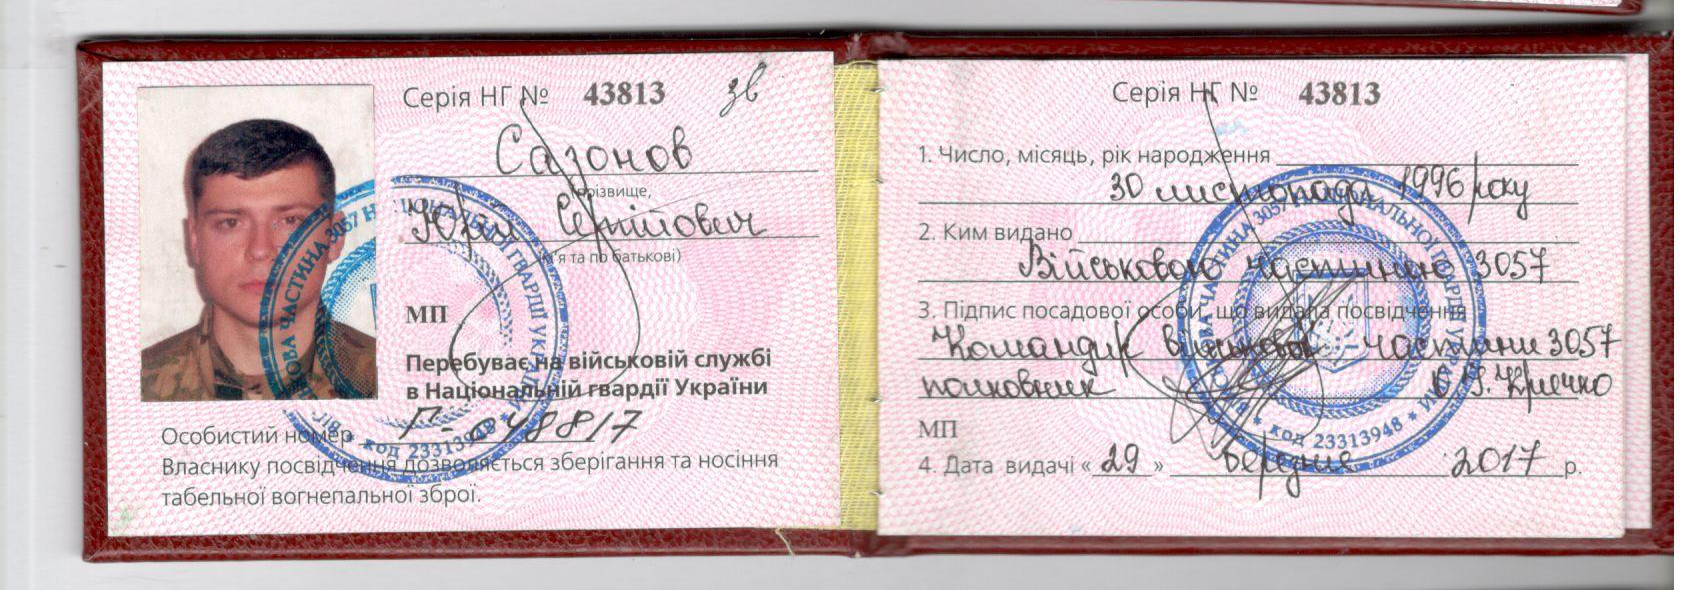 Серія НГ № 43813 зв
Сазонов
(прізвище,
Юрій Сергійович
ім'я та по батькові)
МП
Перебуває на військовій службі
в Національній гвардії України
Особистий номер Г-
Власнику посвідчення дозволяється зберігання та носіння
табельної вогнепальної зброї.
Серія НГ № 43813
1. Число, місяць, рік народження
30 листопада 1996 року
2. Ким видано
Військовою частиною 3057
3. Підпис посадової особи, що видала посвідчення
Командир військової частини 3057
полковник
МП
4. Дата видачі « 29 » березня 2017 р.
ВІЙСЬКОВА ЧАСТИНА 3057 НАЦІОНАЛЬНОЇ ГВАРДІЇ УКРАЇНИ * код 23313948 *